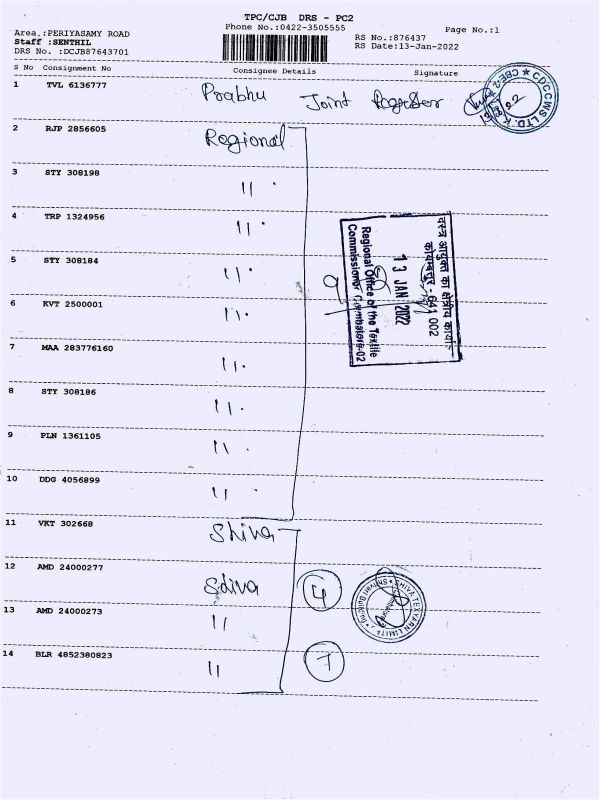 TPC/CJB DRS - PC2
Area.:PERIYASAMY ROAD Phone No.:0422-3505555 Page No.:1
Staff :SENTHIL RS No.:876437
DRS No. :DCJB87643701 RS Date:13-Jan-2022
S No Consignment No Consignee Details Signature
1 TVL 6136777 Prabhu Joint
2 RJP 2856605 Regional
3 STY 308198 "
4 TRP 1324956 "
5 STY 308184 "
6 KVT 2500001 "
7 MAA 283776160 "
8 STY 308186 "
9 PLN 1361105 "
10 DDG 4056899 "
11 VKT 302668 Shiva
12 AMD 24000277 Sdiva 4
13 AMD 24000273 "
14 BLR 4852380823 " 7
CDCCWS LTD. CBE-2
वस्त्र आयुक्त का क्षेत्रीय
कोयम्बतूर - 641 002
13 JAN 2022
Regional Office of the Textile
Commissioner Coimbatore-02
SHIVA TEXYARN LIMITED